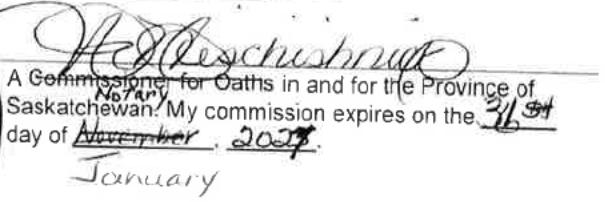 A Commissioner for Oaths in and for the Province of
Notary
Saskatchewan. My commission expires on the 31st
day of November, 2027.
January